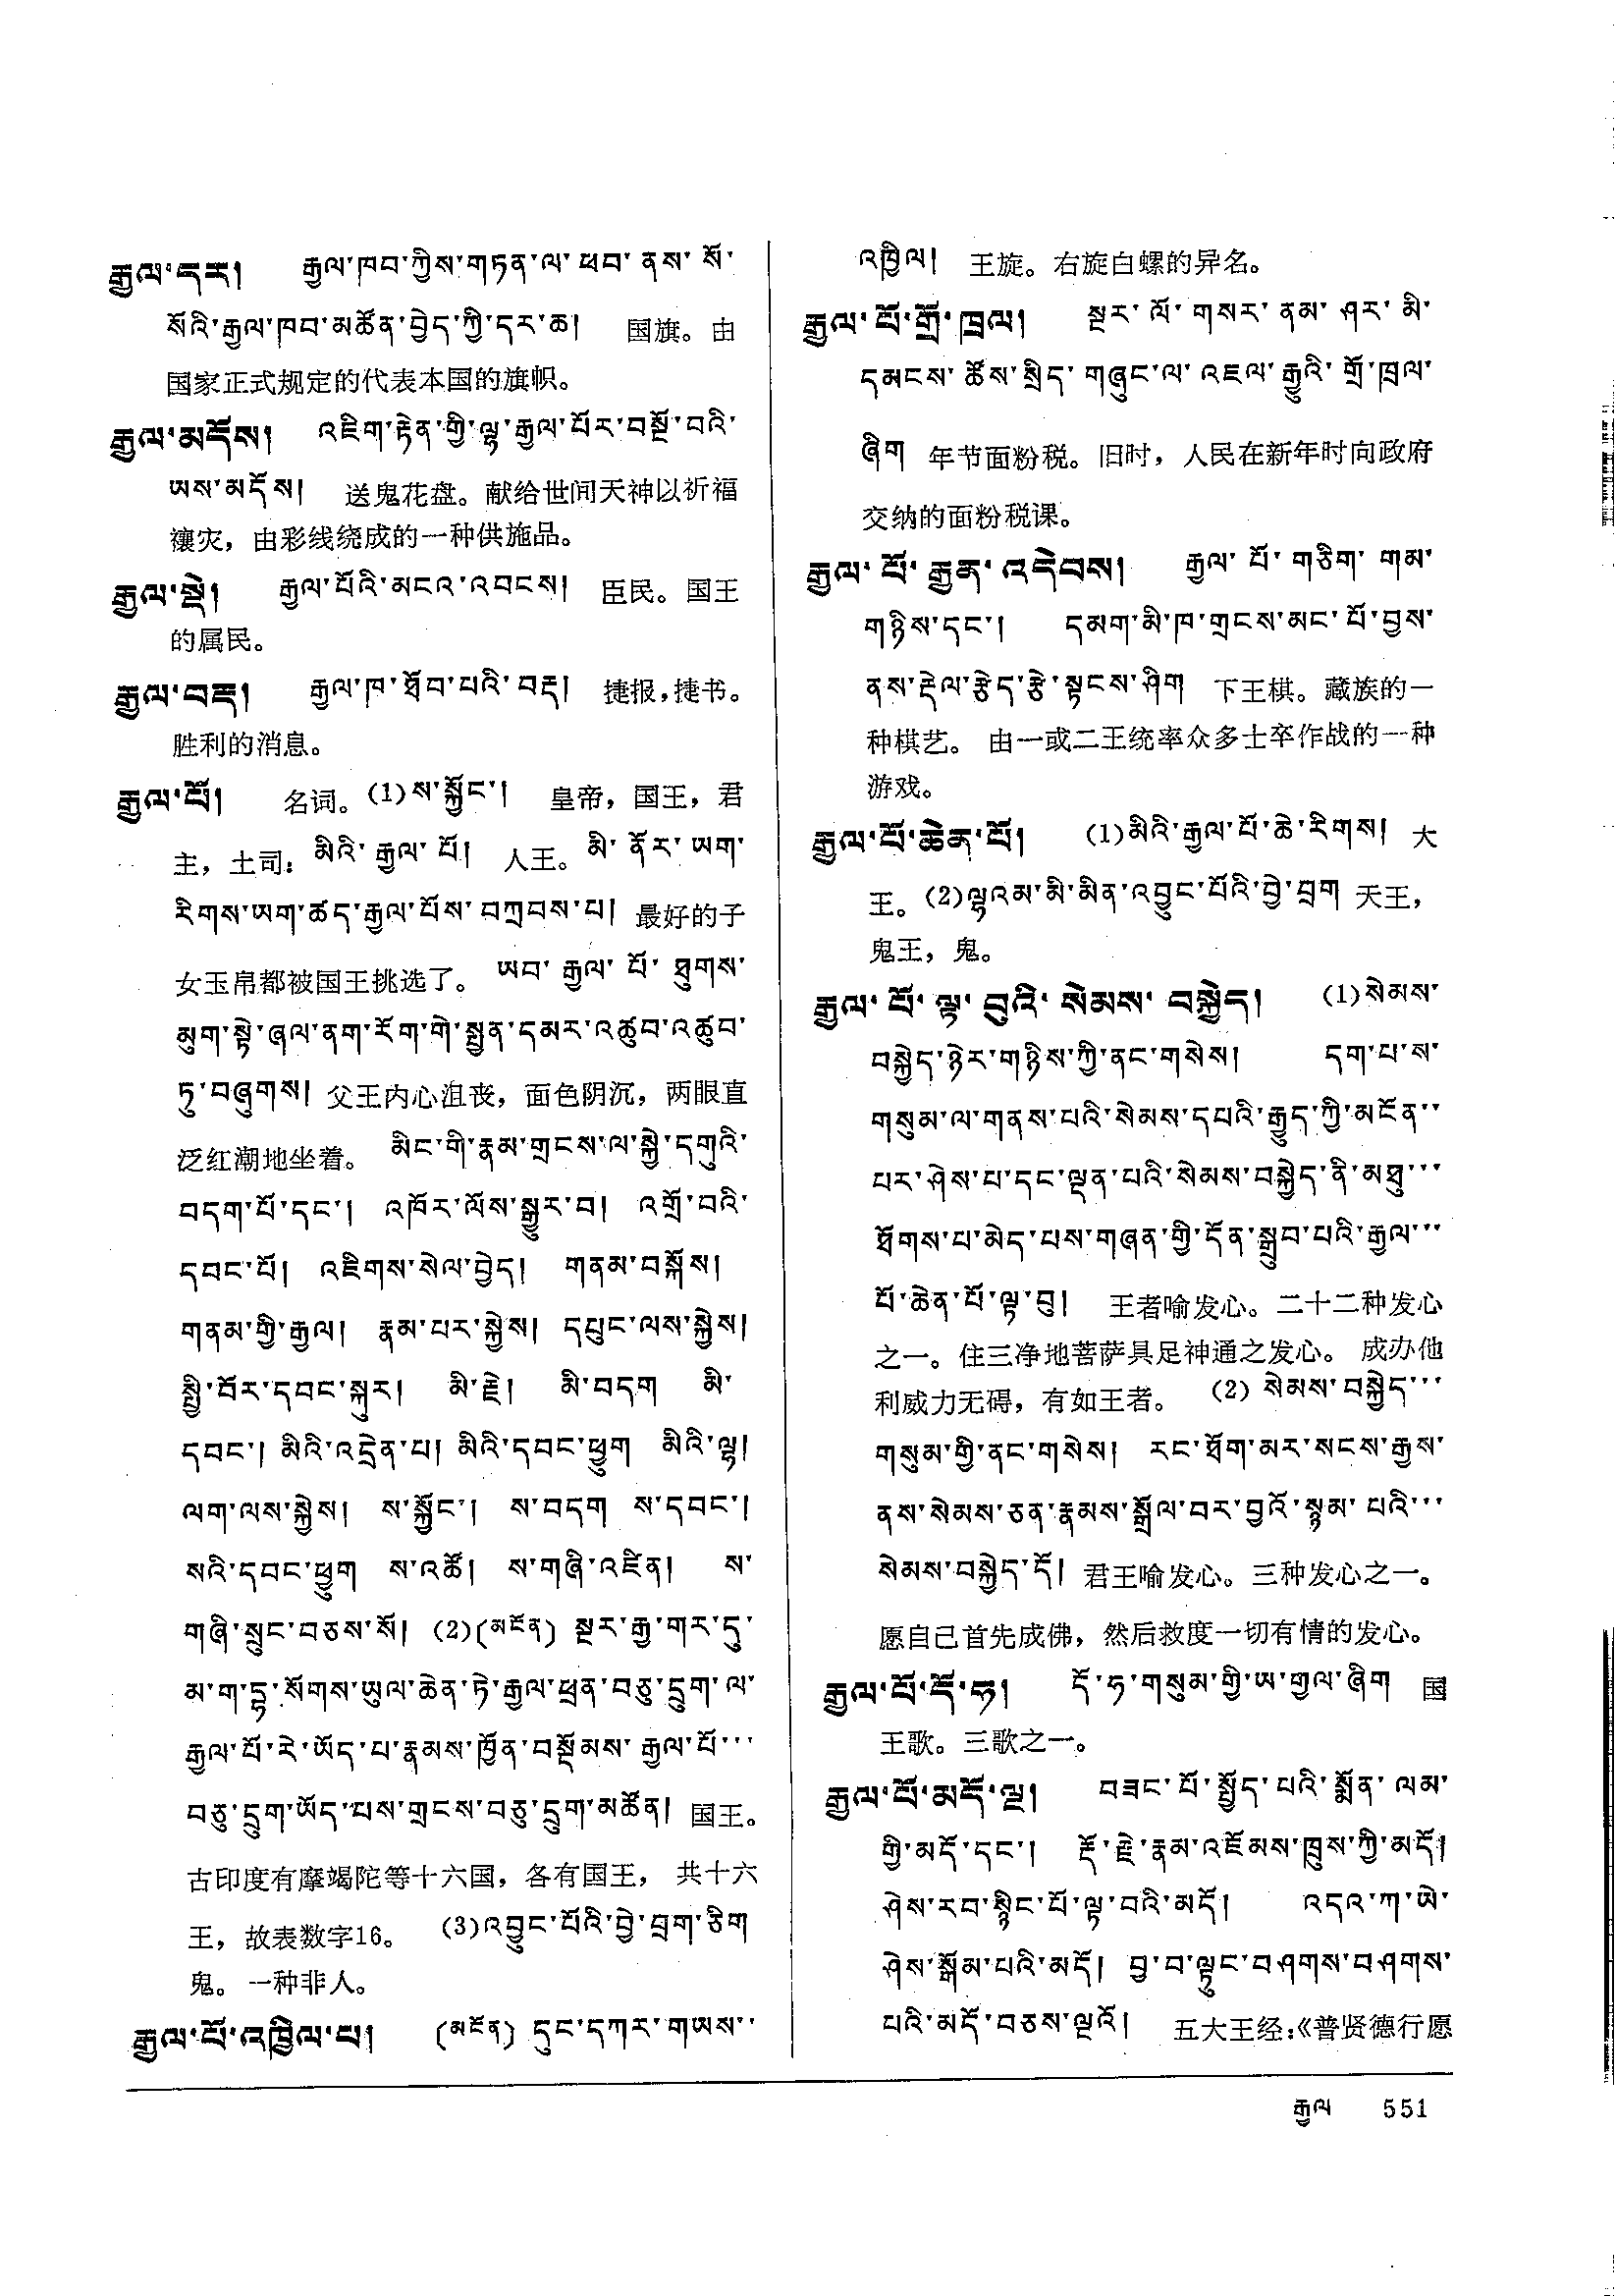 རྒྱལ་དར། རྒྱལ་ཁབ་ཀྱིས་གཏན་ལ་ཕབ་ནས་སོ་
སོའི་རྒྱལ་ཁབ་མཚོན་བྱེད་ཀྱི་དར་ཆ། 国旗。由
国家正式规定的代表本国的旗帜。
རྒྱལ་མདོས། འཇིག་རྟེན་གྱི་ལྷ་རྒྱལ་པོར་བསྔོ་བའི་
ཡས་མདོས། 送鬼花盘。献给世间天神以祈福
禳灾，由彩线绕成的一种供施品。
རྒྱལ་སྡེ། རྒྱལ་པོའི་མངའ་འབངས། 臣民。国王
的属民。
རྒྱལ་བརྡ། རྒྱལ་ཁ་ཐོབ་པའི་བརྡ། 捷报，捷书。
胜利的消息。
རྒྱལ་པོ། 名词。(1)ས་སྐྱོང་། 皇帝，国王，君
主，土司：མིའི་རྒྱལ་པོ། 人王。མི་ནོར་ཡག་
རིགས་ཡག་ཚད་རྒྱལ་པོས་བཀྲབས་པ། 最好的子
女玉帛都被国王挑选了。ཡབ་རྒྱལ་པོ་ཐུགས་
མུག་སྟེ་ཞལ་ནག་རོག་གེ་སྤྱན་དམར་འཚུབ་འཚུབ་
ཏུ་བཞུགས། 父王内心沮丧，面色阴沉，两眼直
泛红潮地坐着。མིང་གི་རྣམ་གྲངས་ལ་སྐྱེ་དགུའི་
བདག་པོ་དང་། འཁོར་ལོས་སྒྱུར་བ། འགྲོ་བའི་
དབང་པོ། འཇིགས་སེལ་བྱེད། གནམ་བསྐོས།
གནམ་གྱི་རྒྱལ། རྣམ་པར་སྐྱེས། དཔུང་ལས་སྐྱེས།
སྤྱི་བོར་དབང་སྐུར། མི་རྗེ། མི་བདག མི་
དབང་། མིའི་འདྲེན་པ། མིའི་དབང་ཕྱུག མིའི་ལྷ།
ལག་ལས་སྐྱེས། ས་སྐྱོང་། ས་བདག ས་དབང་།
སའི་དབང་ཕྱུག ས་འཚོ། ས་གཞི་འཛིན། ས་
གཞི་སྲུང་བཅས་སོ། (2)(མངོན) སྔར་རྒྱ་གར་དུ་
མ་ག་དྷ་སོགས་ཡུལ་ཆེན་ཏེ་རྒྱལ་ཕྲན་བཅུ་དྲུག་ལ་
རྒྱལ་པོ་རེ་ཡོད་པ་རྣམས་ཁྱོན་བསྡོམས་རྒྱལ་པོ་་་
བཅུ་དྲུག་ཡོད་པས་གྲངས་བཅུ་དྲུག་མཚོན། 国王。
古印度有摩竭陀等十六国，各有国王，共十六
王，故表数字16。(3)འབྱུང་པོའི་བྱེ་བྲག་ཅིག
鬼。一种非人。
རྒྱལ་པོ་འཁྱིལ་པ། (མངོན) དུང་དཀར་གཡས་་
འཁྱིལ། 王旋。右旋白螺的异名。
རྒྱལ་པོ་གྲོ་ཁྲལ། སྔར་ལོ་གསར་ནམ་ཤར་མི་
དམངས་ཚོས་སྲིད་གཞུང་ལ་འཇལ་རྒྱུའི་གྲོ་ཁྲལ་
ཞིག 年节面粉税。旧时，人民在新年时向政府
交纳的面粉税课。
རྒྱལ་པོ་རྒྱན་འདེབས། རྒྱལ་པོ་གཅིག་གམ་
གཉིས་དང་། དམག་མི་ཁ་གྲངས་མང་པོ་བྱས་
ནས་རྡེལ་རྩེད་རྩེ་སྟངས་ཤིག 下王棋。藏族的一
种棋艺。由一或二王统率众多士卒作战的一种
游戏。
རྒྱལ་པོ་ཆེན་པོ། (1)མིའི་རྒྱལ་པོ་ཆེ་རིགས། 大
王。(2)ལྷའམ་མི་མིན་འབྱུང་པོའི་བྱེ་བྲག 天王，
鬼王，鬼。
རྒྱལ་པོ་ལྟ་བུའི་སེམས་བསྐྱེད། (1)སེམས་
བསྐྱེད་ཉེར་གཉིས་ཀྱི་ནང་གསེས། དག་པ་ས་
གསུམ་ལ་གནས་པའི་སེམས་དཔའི་རྒྱུད་ཀྱི་མངོན་་
པར་ཤེས་པ་དང་ལྡན་པའི་སེམས་བསྐྱེད་ནི་མཐུ་་་
ཐོགས་པ་མེད་པས་གཞན་གྱི་དོན་སྒྲུབ་པའི་རྒྱལ་་་
པོ་ཆེན་པོ་ལྟ་བུ། 王者喻发心。二十二种发心
之一。住三净地菩萨具足神通之发心。成办他
利威力无碍，有如王者。(2) སེམས་བསྐྱེད་་་
གསུམ་གྱི་ནང་གསེས། རང་ཐོག་མར་སངས་རྒྱས་
ནས་སེམས་ཅན་རྣམས་སྒྲོལ་བར་བྱའོ་སྙམ་པའི་་་
སེམས་བསྐྱེད་དོ། 君王喻发心。三种发心之一。
愿自己首先成佛，然后救度一切有情的发心。
རྒྱལ་པོ་དོ་ཧ། དོ་ཧ་གསུམ་གྱི་ཡ་གྱལ་ཞིག 国
王歌。三歌之一。
རྒྱལ་པོ་མདོ་ལྔ། བཟང་པོ་སྤྱོད་པའི་སྨོན་ལམ་
གྱི་མདོ་དང་། རྡོ་རྗེ་རྣམ་འཇོམས་ཁྲུས་ཀྱི་མདོ།
ཤེས་རབ་སྙིང་པོ་ལྟ་བའི་མདོ། འདའ་ཀ་ཡེ་
ཤེས་སྒོམ་པའི་མདོ། བྱ་བ་ལྟུང་བཤགས་བཤགས་
པའི་མདོ་བཅས་ལྔའོ། 五大王经：《普贤德行愿
རྒྱལ 551